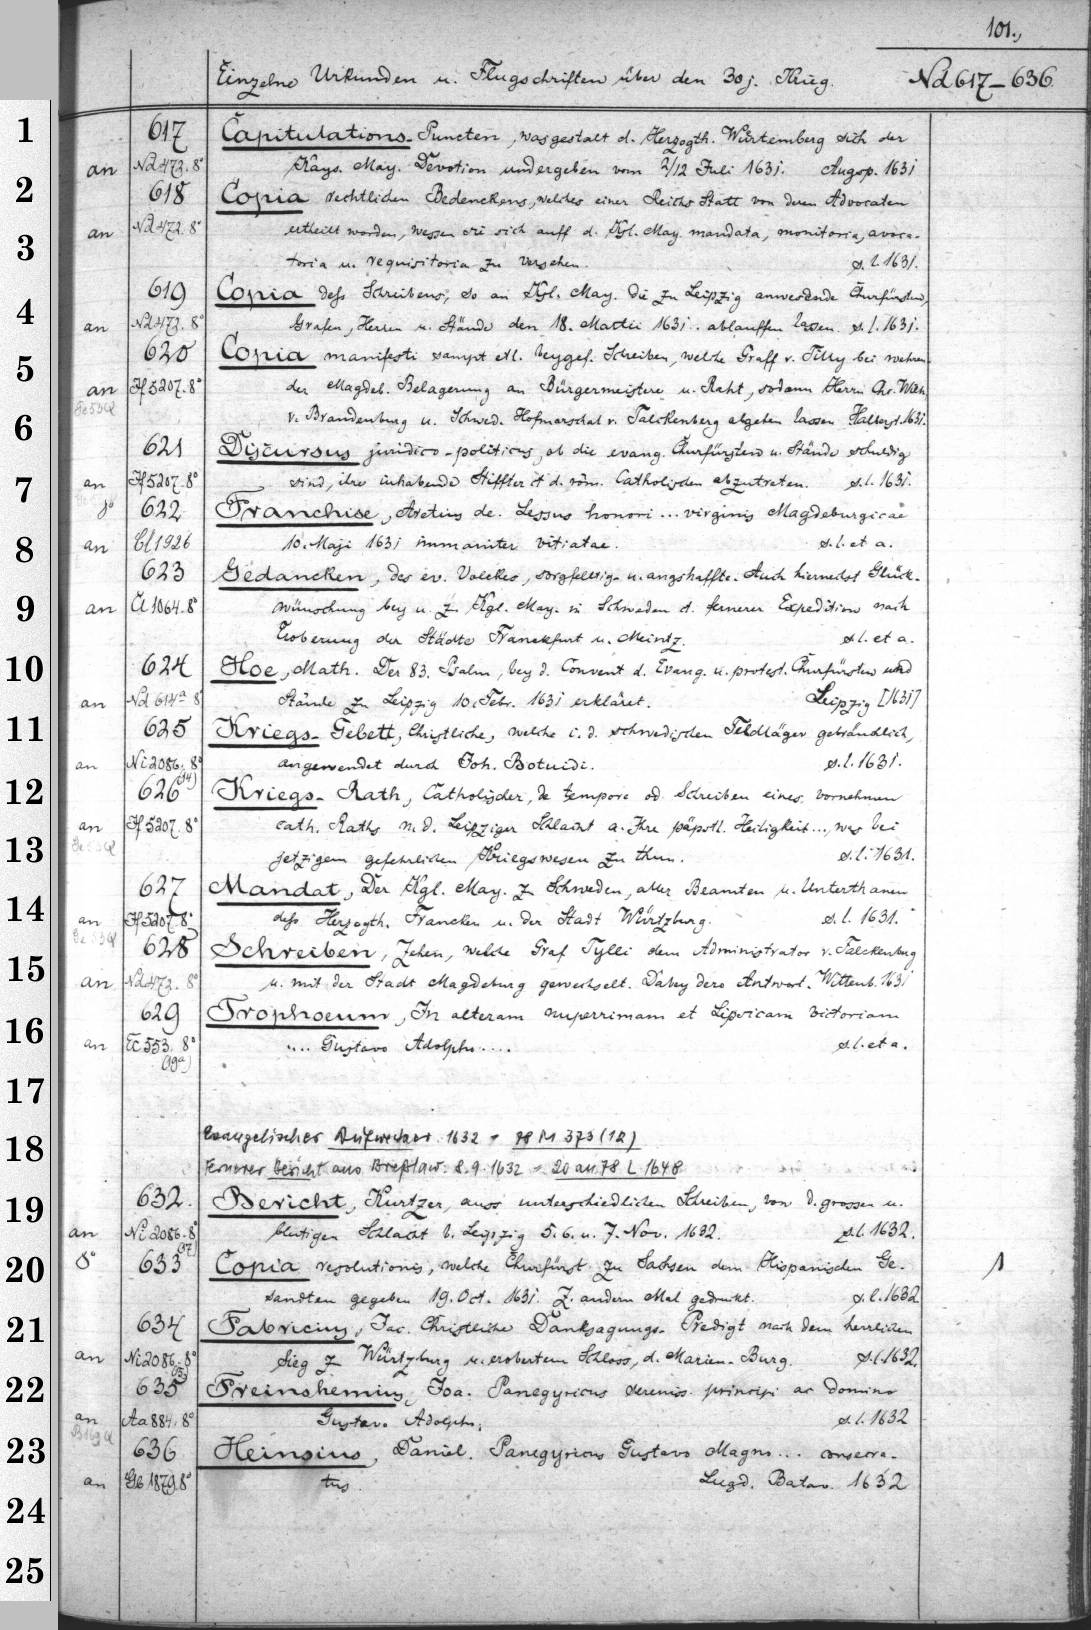 101.,
Einzelne Urkunden u. Flugschriften über den 30j. Krieg. Nd 617-636
1 617 Capitulations-Puncten, wasgestalt d. Herzogth. Würtemberg sich der
an Nd 473.8° Kays. May. Devotion undergeben vom 2/12 Juli 1631. Augsp. 1631
2 618 Copia rechtlichen Bedenckens, welches einer Reichs Statt von deren Advocaten
3 an Nd 472.8° ertheilt worden, wessen sie sich auff d. Kgl. May. mandata, monitoria, avoca-
toria u. requisitoria zu versehen. s.l. 1631.
4 619 Copia dess Schreibens, so an Kgl. May. die zu Leipzig anwesende Churfürsten,
an Nd 473.8° Grafen, Herren u. Stände den 18. Martii 1631. ablauffen lassen. s.l. 1631.
5 620 Copia manifesti sampt etl. beygef. Schreiben, welche Graff v. Tilly bei wehren-
an Jf 5207.8° der Magdeb. Belagerung an Bürgermeistere u. Raht, sodann Herrn Chr. Wilh.
6 v. Brandenburg u. Schwed. Hofmarschal v. Falckenberg abgehen lassen Halberst. 1631.
621 Discursus juridico-politicus, ob die evang. Churfürsten u. Stände schuldig
7 an Jf 5207.8° sind, ihre inhabende Stiffter et d. röm. Catholischen abzutreten. s.l. 1631.
8° 622 Franchise, Aretius de. Lessus honori ... virginis Magdeburgicae
8 an Cl 1926 10. Maji 1631 immaniter vitiatae. s.l. et a.
623 Gedancken, des ev. Volckes, sorgfeltig- u. angshaffte. Auch hiernebst Glück-
9 an Cl 1064.8° wünschung bey u. z. Kgl. May. in Schweden et. fernerer Expedition nach
Eroberung der Städte Franckfurt u. Meintz. s.l. et a.
10 624 Hoe, Math. Der 83. Psalm, bey d. Convent d. Evang. u. protest. Churfürsten und
an Nd 614a 8° Stände zu Leipzig 10. Febr. 1631 erkläret. Leipzig [1631]
11 625 Kriegs-Gebett, Christliche, welche i. d. schwedischen Feldläger gebräuchlich,
an Ni 2086.8° (34) angewendet durch Joh. Botvidi. s.l. 1631.
12 626 Kriegs-Rath, Catholischer, de tempore od. Schreiben eines vornehmen
an Jf 5207.8° cath. Raths n. d. Leipziger Schlacht a. Ihre päpstl. Heiligkeit..., was bei
13 jetzigem gefehrlichen Kriegswesen zu thun. s.l. 1631.
627 Mandat, Der Kgl. May. z. Schweden, aller Beamten u. Unterthanen
14 an Jf 5207.8° dess Herzogth. Francken u. der Stadt Würtzburg. s.l. 1631.
628 Schreiben, Zehen, welche Graf Tylli dem Administrator v. Falckenburg
15 an Nd 473.8° u. mit der Stadt Magdeburg gewechselt. Dabey dero Antwort. Wittenb. 1631
629 Trophoeum, In alteram nuperrimam et Lipsicam victoriam
16 an Ec 553.8° (19a) .... Gustavo Adolpho .... s.l. et a.
17
18 Evangelischer Aufwecker 1632 = 78 M 373 (12)
Fernerer Bericht aus Breßlaw. 8.9.1632 = 20 an 78 L 1648
19 632. Bericht, Kurtzer, auss unterschiedlichen Schreiben, von d. grossen u.
an Ni 2086.8° (37) blutigen Schlacht b. Leipzig 5. 6. u. 7. Nov. 1632. s.l. 1632.
20 8° 633 Copia resolutionis, welche Churfürst zu Sachsen dem Hispanischen Ge- 1
sandten gegeben 19. Oct. 1631. Z. andern Mal gedruckt. s.l. 1632
21 634 Fabricius, Jac. Christliche Danksagungs-Predigt nach dem herrlichen
an Ni 2086.8° Sieg z Würtzburg u. erobertem Schloss, d. Marien-Burg. s.l. 1632.
22 635 Freinshemius, Joa. Panegyricus sereniss. principi ac domino
an Aa 884.8° Gustavo Adolpho. s.l. 1632
23 636 Heinsius, Daniel. Panegyricus Gustavo Magno... consecra-
an Gb 1879 8° tus. Lugd. Batav. 1632
24
25